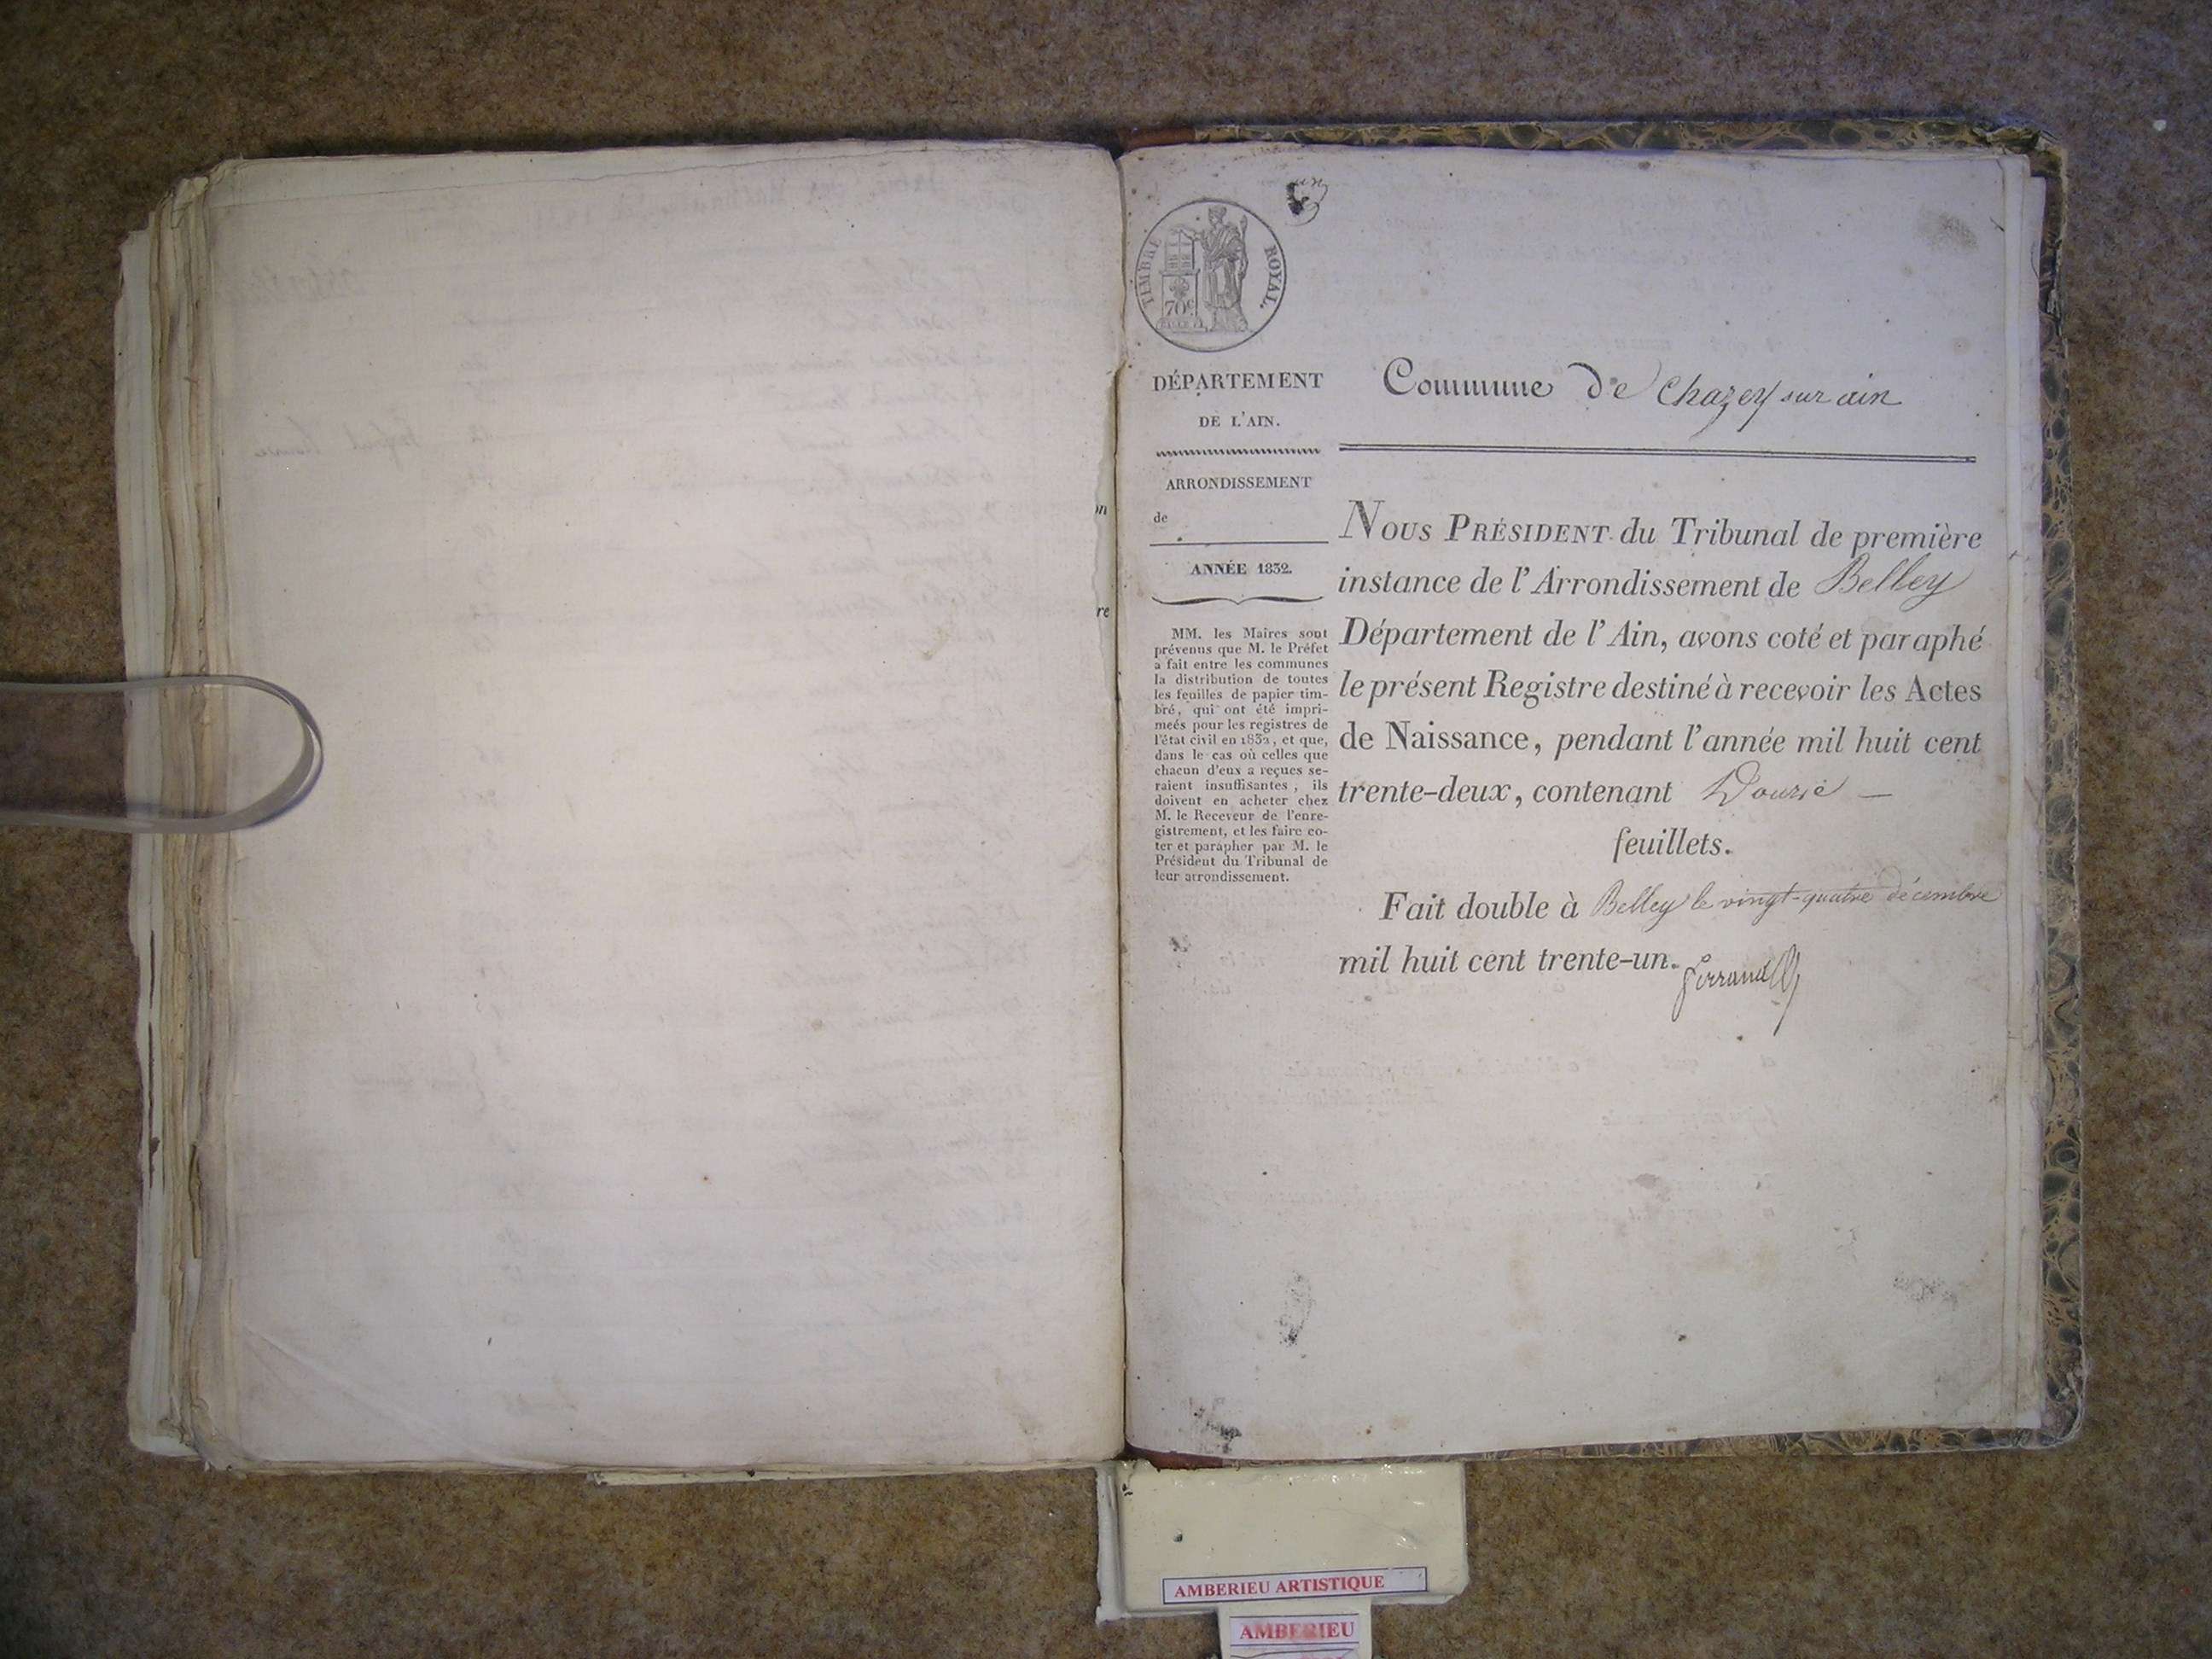 TIMBRE ROYAL.
70c
DÉPARTEMENT
DE L'AIN.
ARRONDISSEMENT
de
ANNÉE 1832.
MM. les Maires sont
prévenus que M. le Préfet
a fait entre les communes
la distribution de toutes
les feuilles de papier tim-
bré, qui ont été impri-
meés pour les registres de
l'état civil en 1832, et que,
dans le cas où celles que
chacun d'eux a reçues se-
raient insuffisantes, ils
doivent en acheter chez
M. le Receveur de l'enre-
gistrement, et les faire co-
ter et parapher par M. le
Président du Tribunal de
leur arrondissement.
Commune de Chazey sur ain
NOUS PRÉSIDENT du Tribunal de première
instance de l'Arrondissement de Belley
Département de l'Ain, avons coté et paraphé
le présent Registre destiné à recevoir les Actes
de Naissance, pendant l'année mil huit cent
trente-deux, contenant Douze —
feuillets.
Fait double à Belley le vingt-quatre décembre
mil huit cent trente-un.
on
re
AMBERIEU ARTISTIQUE
AMBERIEU